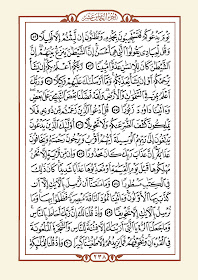 يَوْمَ يَدْعُوكُمْ فَتَسْتَجِيبُونَ بِحَمْدِهِ وَتَظُنُّونَ إِن لَّبِثْتُمْ إِلَّا قَلِيلًا
وَقُل لِّعِبَادِي يَقُولُوا الَّتِي هِيَ أَحْسَنُ إِنَّ الشَّيْطَانَ يَنزَغُ بَيْنَهُمْ إِنَّ
الشَّيْطَانَ كَانَ لِلْإِنسَانِ عَدُوًّا مُّبِينًا رَّبُّكُمْ أَعْلَمُ بِكُمْ إِن يَشَأْ
يَرْحَمْكُمْ أَوْ إِن يَشَأْ يُعَذِّبْكُمْ وَمَا أَرْسَلْنَاكَ عَلَيْهِمْ وَكِيلًا وَرَبُّكَ
أَعْلَمُ بِمَن فِي السَّمَاوَاتِ وَالْأَرْضِ وَلَقَدْ فَضَّلْنَا بَعْضَ النَّبِيِّينَ عَلَىٰ بَعْضٍ
وَآتَيْنَا دَاوُودَ زَبُورًا قُلِ ادْعُوا الَّذِينَ زَعَمْتُم مِّن دُونِهِ فَلَا
يَمْلِكُونَ كَشْفَ الضُّرِّ عَنكُمْ وَلَا تَحْوِيلًا أُولَٰئِكَ الَّذِينَ يَدْعُونَ
يَبْتَغُونَ إِلَىٰ رَبِّهِمُ الْوَسِيلَةَ أَيُّهُمْ أَقْرَبُ وَيَرْجُونَ رَحْمَتَهُ وَيَخَافُونَ
عَذَابَهُ إِنَّ عَذَابَ رَبِّكَ كَانَ مَحْذُورًا وَإِن مِّن قَرْيَةٍ إِلَّا نَحْنُ
مُهْلِكُوهَا قَبْلَ يَوْمِ الْقِيَامَةِ أَوْ مُعَذِّبُوهَا عَذَابًا شَدِيدًا كَانَ ذَٰلِكَ
فِي الْكِتَابِ مَسْطُورًا وَمَا مَنَعَنَا أَن نُّرْسِلَ بِالْآيَاتِ إِلَّا أَن
كَذَّبَ بِهَا الْأَوَّلُونَ وَآتَيْنَا ثَمُودَ النَّاقَةَ مُبْصِرَةً فَظَلَمُوا بِهَا وَمَا
نُرْسِلُ بِالْآيَاتِ إِلَّا تَخْوِيفًا وَإِذْ قُلْنَا لَكَ إِنَّ رَبَّكَ أَحَاطَ بِالنَّاسِ
وَمَا جَعَلْنَا الرُّؤْيَا الَّتِي أَرَيْنَاكَ إِلَّا فِتْنَةً لِّلنَّاسِ وَالشَّجَرَةَ الْمَلْعُونَةَ
فِي الْقُرْآنِ وَنُخَوِّفُهُمْ فَمَا يَزِيدُهُمْ إِلَّا طُغْيَانًا كَبِيرًا وَإِذْ قُلْنَا لِلْمَلَائِكَةِ
٢٣٨